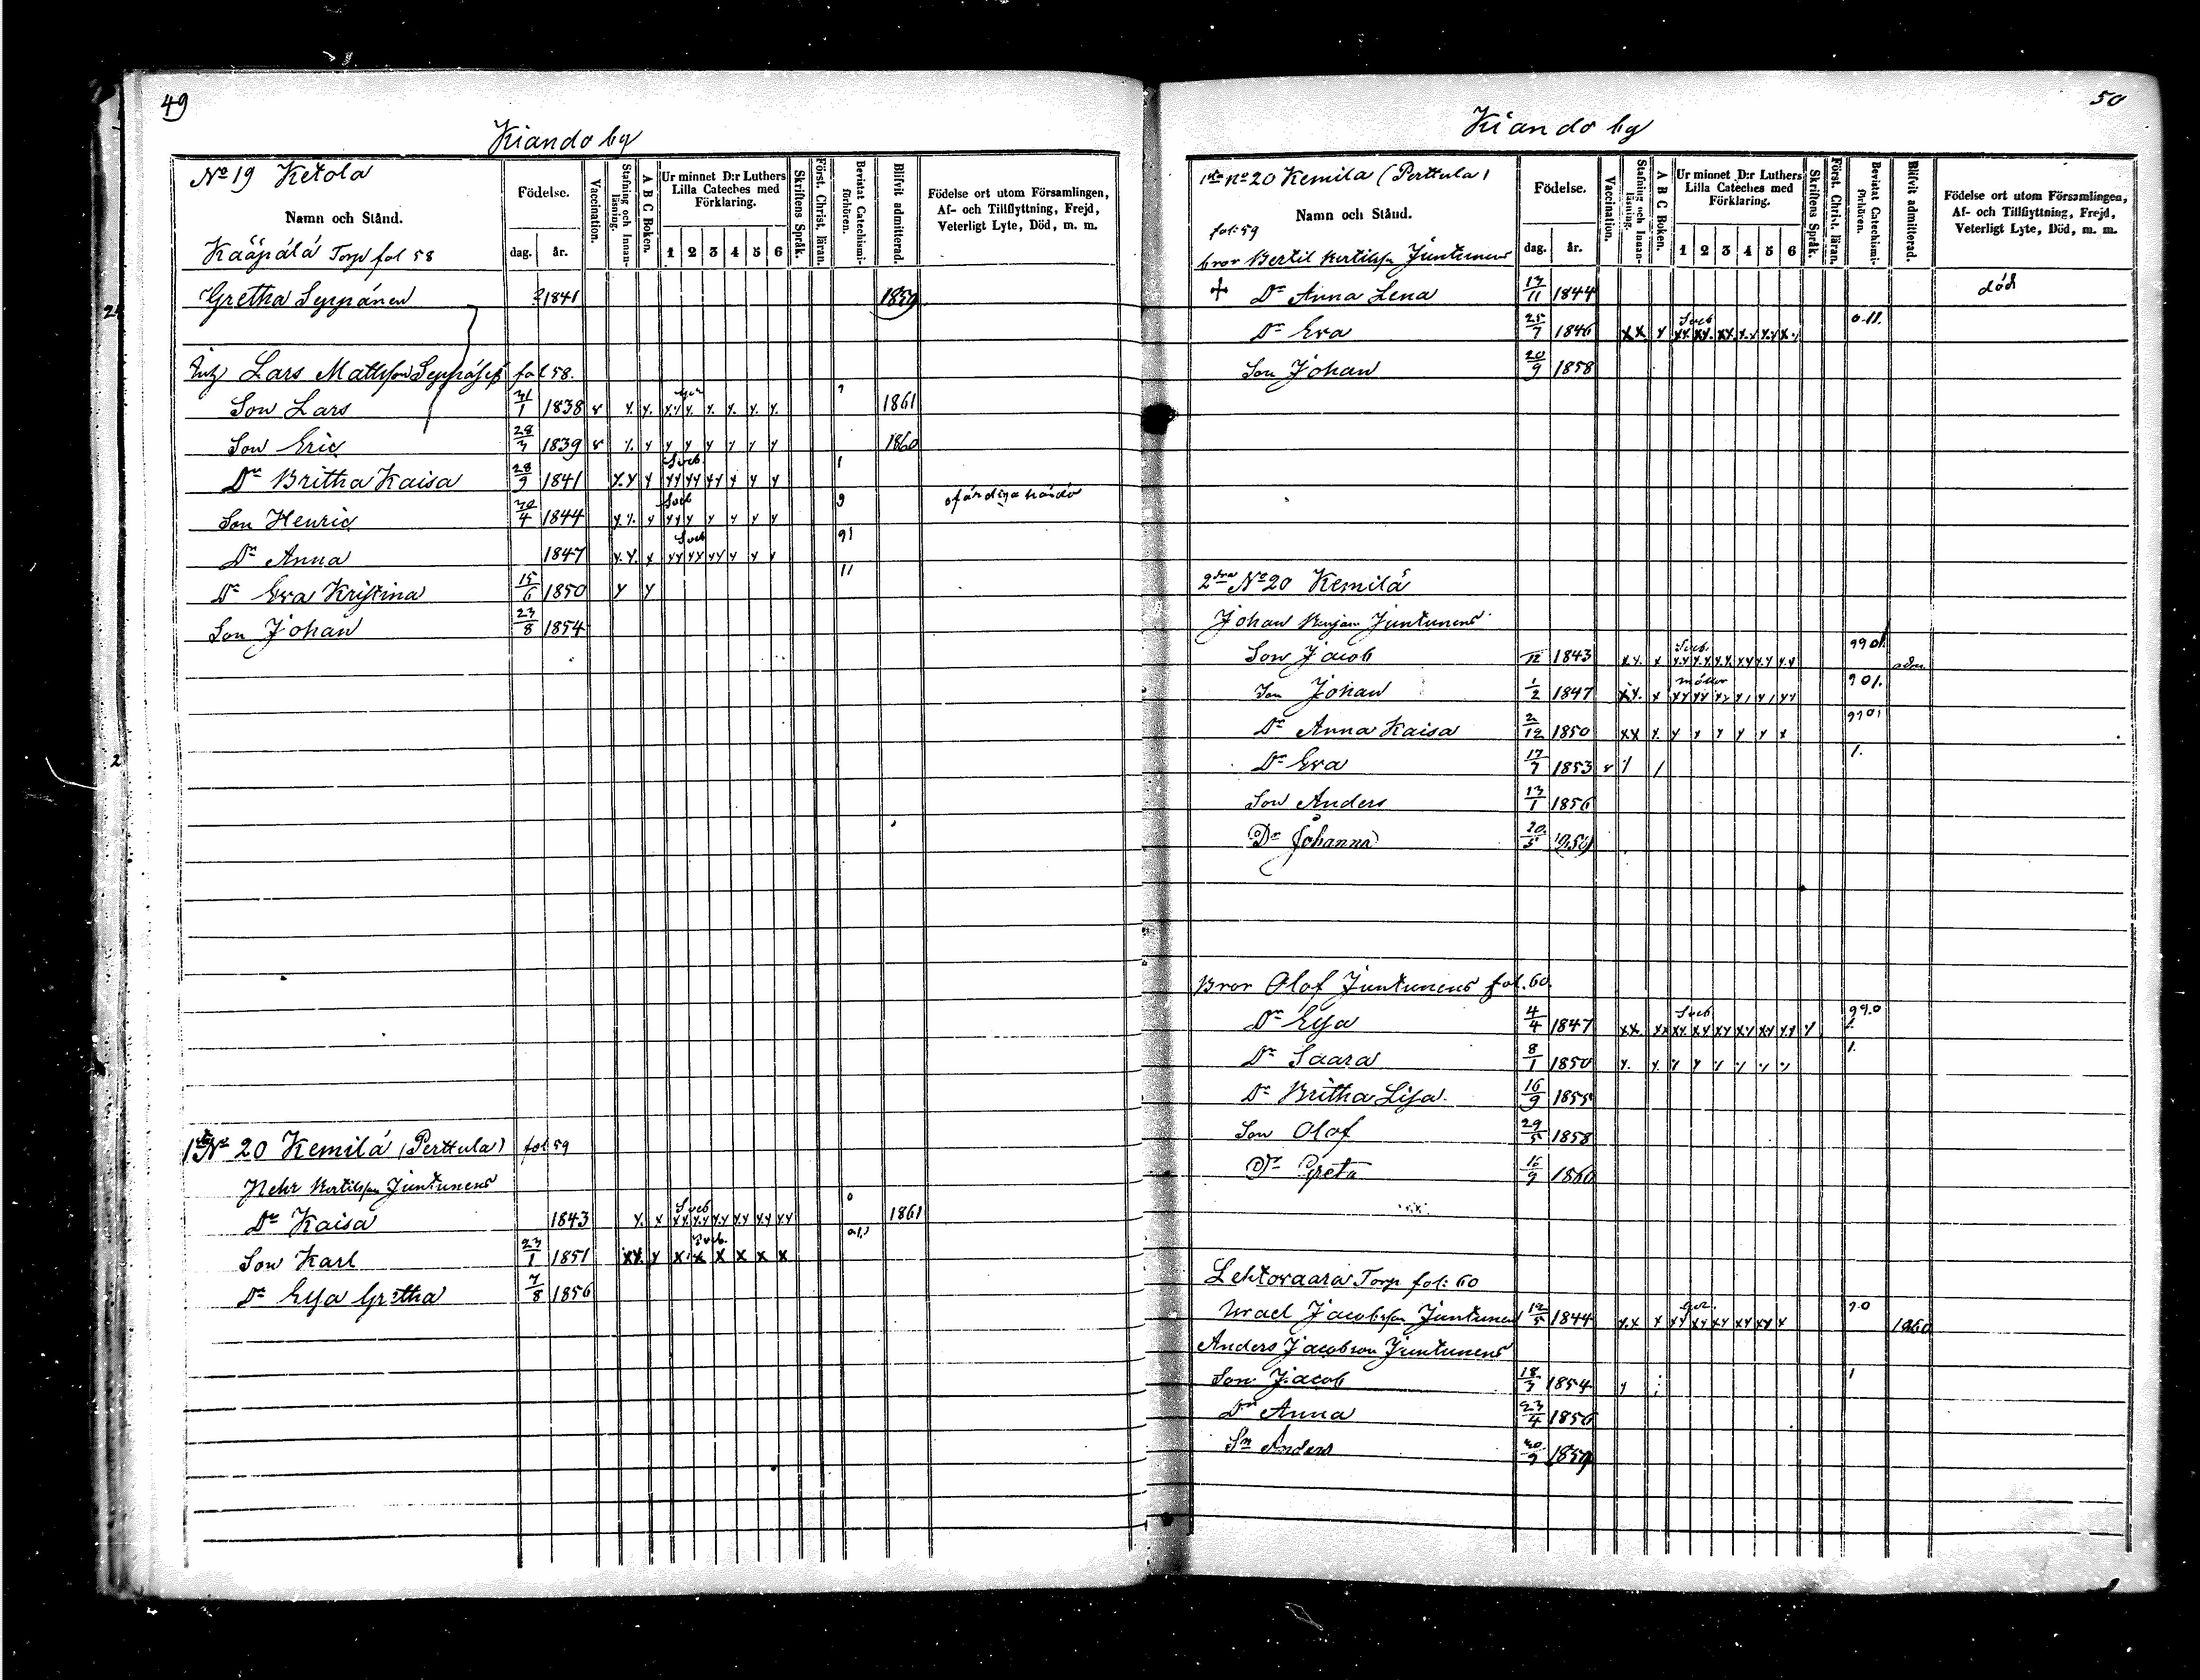 49
Kiando by
No 19 Ketola
Namn och Stånd.
Födelse.
dag. år.
Vaccination.
Stafning och Innan-läsning.
A B C Boken.
Ur minnet D:r Luthers Lilla Cateches med Förklaring.
1 2 3 4 5 6
Skriftens Språk.
Först. Christ. läran.
Bevistat Catechismi-förhören.
Blifvit admitterad.
Födelse ort utom Församlingen, Af- och Tillflyttning, Frejd, Veterligt Lyte, Död, m. m.
Kääpälä Torp fol 58
Gretha Seppänen ? 1841 1859
Lars Mattsson Seppäs fol 58.
Son Lars 31/1 1838 1861
Son Eric 28/3 1839 1860
Dr Britha Kaisa 28/9 1841 Sveb. 1
Son Henric 30/4 1844 Sveb 9 ofärdiga
Dr Anna 1847 Sveb 91
Dr Eva Kristina 15/6 1850 11
Son Johan 23/8 1854
1sta No 20 Kemilä (Perttula) fol 59
Pehr Bertilsson Juntunens
Dr Kaisa 1843 Sveb 0 1861
Son Karl 23/1 1851 Sveb.
Dr Elsa Gretha 7/8 1856
50
Kiando by
1sta No 20 Kemilä (Perttula)
Namn och Stånd.
Födelse.
dag. år.
Vaccination.
Stafning och Innan-läsning.
A B C Boken.
Ur minnet D:r Luthers Lilla Cateches med Förklaring.
1 2 3 4 5 6
Skriftens Språk.
Först. Christ. läran.
Bevistat Catechismi-förhören.
Blifvit admitterad.
Födelse ort utom Församlingen, Af- och Tillflyttning, Frejd, Veterligt Lyte, Död, m. m.
fol: 59
bror Bertil Bertilsson Juntunens
+ Dr Anna Lena 17/11 1844 död
Dr Eva 25/7 1846 Sveb 0.11.
Son Johan 20/9 1858
2dra No 20 Kemilä
Johan Benjam Juntunens
Son Jacob /12 1843 Sveb. 9901. adm.
Son Johan 1/2 1847 901.
Dr Anna Kaisa 2/12 1850 9701
Dr Eva 17/7 1853 1.
Son Anders 13/1 1856
Dr Johanna 20/5 1859
Bror Olof Juntunens fol. 60.
Dr Elsa 4/4 1847 Sveb. 99.0
Dr Saara 8/1 1850 1.
Dr Britha Lisa 16/9 1855
Son Olof 29/5 1858
Dr Greta 16/9 1860
Lehtovaara Torp fol: 60
Israel Jacobsson Juntunen 12/5 1844 9.0 1860
Anders Jacobson Juntunens
Son Jacob 18/3 1854 1
Dr Anna 23/4 1856
Sn Anders 1859